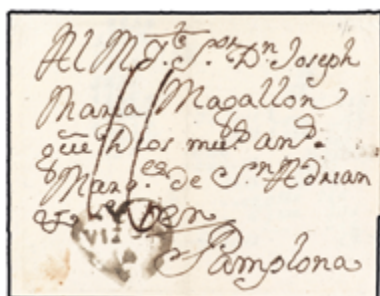 Al M. Y.e S.or D.n Joseph
Maria Magallon
gũe Dios mu.s an.s
Marq.es de S.n Adrian
en
Pamplona